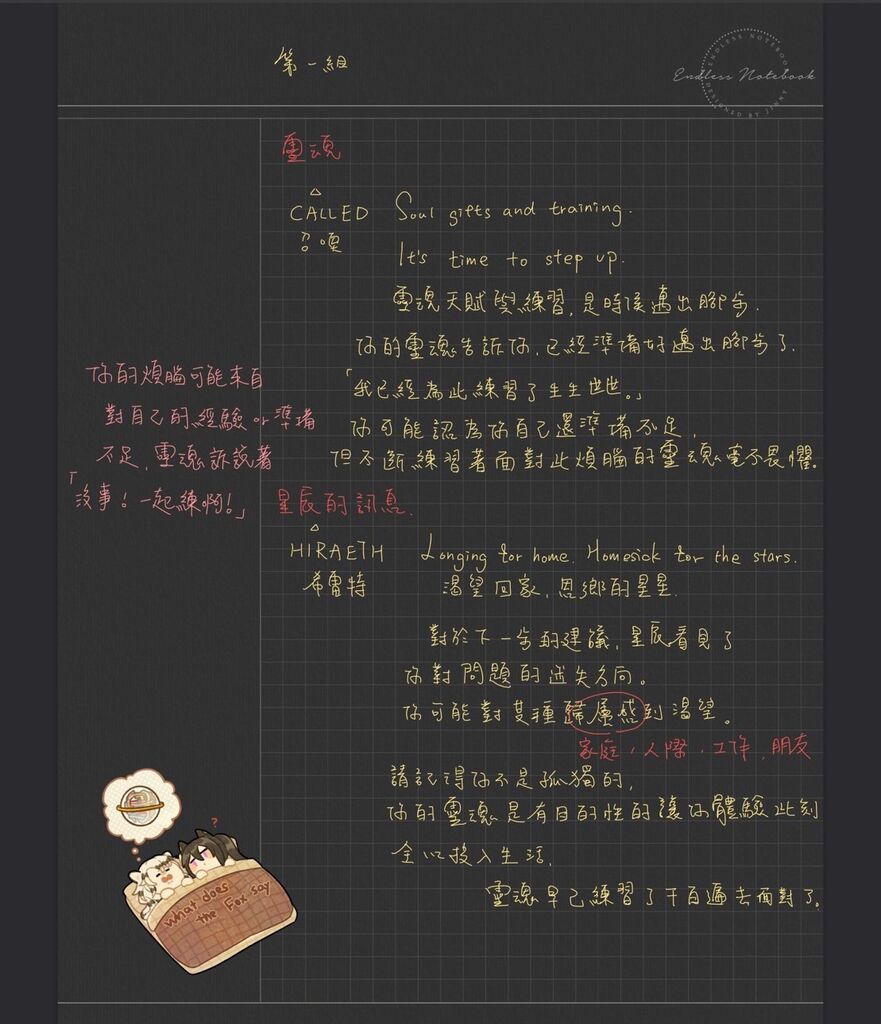 第一組
ENDLESS NOTEBOOK
Endless Notebook
DESIGNED BY JINNY
靈魂
CALLED Soul gifts and training.
召喚
It's time to step up.
靈魂天賦與練習,是時候邁出腳步.
你的靈魂告訴你,已經準備好邁出腳步了.
「我已經為此練習了生生世世。」
你可能認為你自己還準備不足,
但不斷練習著面對此煩惱的靈魂毫不畏懼。
你的煩惱可能來自
對自己的經驗or準備
不足,靈魂訴說著
「沒事!一起練啊!」
星辰的訊息.
HIRAETH Longing for home. Homesick for the stars.
希雷特 渴望回家,思鄉的星星.
對於下一步的建議,星辰看見了
你對問題的迷失方向。
你可能對某種歸屬感到渴望。
家庭,人際,工作,朋友
請記得你不是孤獨的,
你的靈魂是有目的性的讓你體驗此刻
全心投入生活,
靈魂早已練習了千百遍去面對了。
?
what does
the Fox say